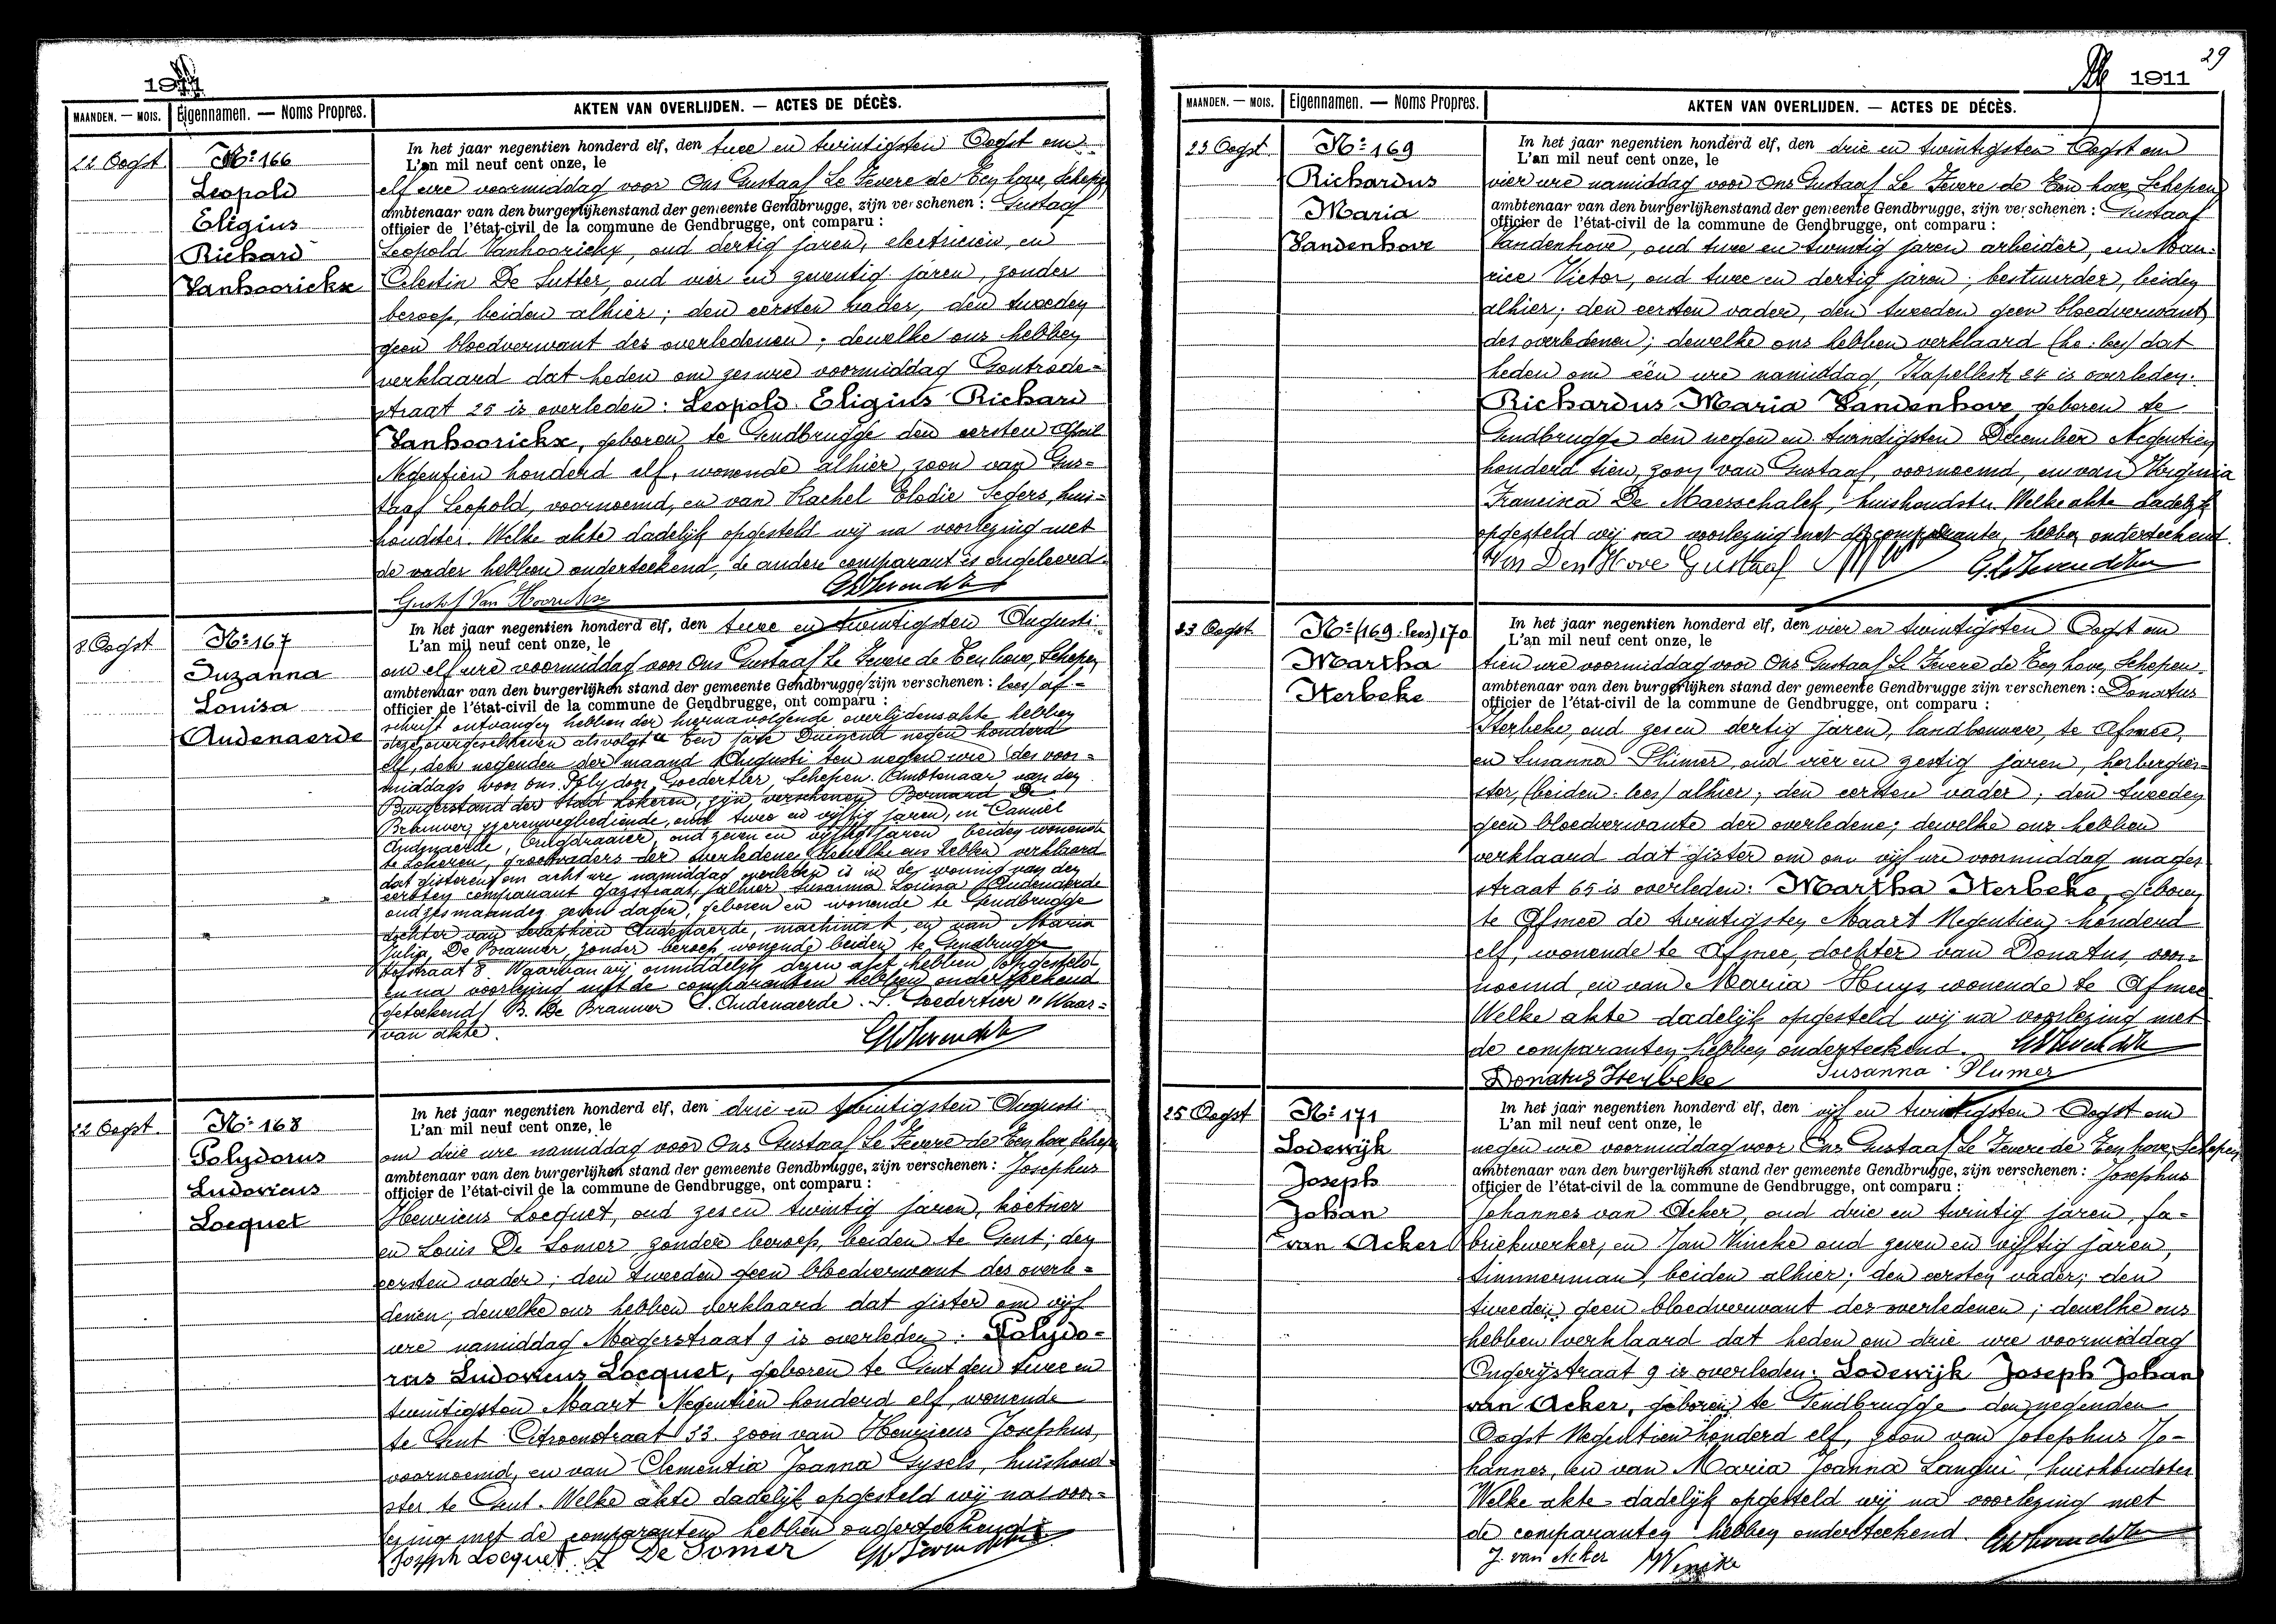 1911
MAANDEN. — MOIS.
Eigennamen. — Noms Propres.
AKTEN VAN OVERLIJDEN. — ACTES DE DÉCÈS.
22 Oogst
No 166
Leopold
Eligius
Richard
Vanhoorickx
In het jaar negentien honderd elf, den twee en twintigsten Oogst om
L'an mil neuf cent onze, le
elf ure voormiddag voor Ons Gustaaf Le Fevere de Ten hove, Schepen
ambtenaar van den burgerlijkenstand der gemeente Gendbrugge, zijn verschenen : Gustaaf
officier de l'état-civil de la commune de Gendbrugge, ont comparu :
Leopold Vanhoorickx, oud dertig jaren, electricien, en
Celestin De Sutter, oud vier en zeventig jaren, zonder
beroep, beiden alhier; den eersten vader, den tweeden
geen bloedverwant des overledenen; dewelke ons hebben
verklaard dat heden om zes ure voormiddag Gontrode-
straat 25 is overleden: Leopold Eligius Richard
Vanhoorickx, geboren te Gendbrugge den eersten April
Negentien honderd elf, wonende alhier, zoon van Gus-
taaf Leopold, voornoemd, en van Rachel Elodie Segers, huis-
houdster. Welke akte dadelijk opgesteld wij na voorlezing met
de vader hebben onderteekend, de andere comparant is ongeleerd.
Gustaf Van Hoorickx
8 Oogst
No 167
Suzanna
Louisa
Audenaerde
In het jaar negentien honderd elf, den twee en twintigsten Augusti
L'an mil neuf cent onze, le
om elf ure voormiddag voor Ons Gustaaf Le Fevere de Ten hove, Schepen
ambtenaar van den burgerlijken stand der gemeente Gendbrugge zijn verschenen : lees/ af-
officier de l'état-civil de la commune de Gendbrugge, ont comparu :
schrift ontvangen hebben der hiernavolgende overlijdensakte hebben
deze overgeschreven als volgt " Ten jare Duizend negen honderd
elf, den negenden der maand Augusti ten negen ure des voor-
middags, voor ons Polydoor Goedertier, Schepen Ambtenaar van den
Burgerstand der Stad Lokeren, zijn verschenen Bernard De
Brauwer, ijzerenwegbediende, oud twee en vijftig jaren, en Camiel
Audenaerde, oud zeven en vijftig jaren, beiden wonende
te Lokeren, grootvaders der overledene, dewelke ons hebben verklaard
dat gisteren om acht ure namiddag overleden is in de woning van den
eersten comparant Gazstraat, alhier Susanna Louisa Audenaerde
oud zes maanden zeven dagen, geboren en wonende te Gendbrugge
dochter van Seraphien Audenaerde, machinist, en van Maria
Julia De Brauwer, zonder beroep, wonende beiden te Gendbrugge
8. Waarvan wij onmiddelijk dezen akt hebben opgesteld
en na voorlezing met de comparanten hebben onderteekend
(geteekend) B. De Brauwer C. Audenaerde. P. Goedertier " Waar-
van akte.
22 Oogst
No 168
Polydorus
Ludovicus
Locquet
In het jaar negentien honderd elf, den drie en twintigsten Augusti
L'an mil neuf cent onze, le
om drie ure namiddag voor Ons Gustaaf Le Fevere de Ten hove, Schepen
ambtenaar van den burgerlijken stand der gemeente Gendbrugge, zijn verschenen : Josephus
officier de l'état-civil de la commune de Gendbrugge, ont comparu :
Henricus Locquet, oud zes en twintig jaren,
en Louis De Somer zonder beroep, beiden te Gent; den
eersten vader; den tweeden geen bloedverwant des overle-
denen; dewelke ons hebben verklaard dat gister om vijf
ure namiddag Magerstraat 9 is overleden: Polydo-
rus Ludovicus Locquet, geboren te Gent den twee en
twintigsten Maart Negentien honderd elf, wonende
te Gent Citroenstraat 33. zoon van Henricus Josephus,
voornoemd, en van Clementia Joanna Gysels, huishoud-
ster te Gent. Welke akte dadelijk opgesteld wij na voor-
lezing met de comparanten hebben onderteekend
Joseph Locquet. L De Somer
29
1911
MAANDEN. — MOIS.
Eigennamen. — Noms Propres.
AKTEN VAN OVERLIJDEN. — ACTES DE DÉCÈS.
23 Oogst
No 169
Richardus
Maria
Vandenhove
In het jaar negentien honderd elf, den drie en twintigsten Oogst om
L'an mil neuf cent onze, le
vier ure namiddag voor Ons Gustaaf Le Fevere de Ten hove Schepen
ambtenaar van den burgerlijkenstand der gemeente Gendbrugge, zijn verschenen : Gustaaf
officier de l'état-civil de la commune de Gendbrugge, ont comparu :
Vandenhove, oud twee en twintig jaren arbeider, en Mau-
rice Victor, oud twee en dertig jaren, bestuurder, beiden
alhier; den eersten vader, den tweeden geen bloedverwant
des overledenen; dewelke ons hebben verklaard (he: lees) dat
heden om één ure namiddag, Kapellestr 24 is overleden:
Richardus Maria Vandenhove, geboren te
Gendbrugge den negen en twindigsten December Negentien
honderd tien, zoon van Gustaaf, voornoemd, en van Virginia
Francisca De Maesschalck, huishoudster. Welke akte dadelijk
opgesteld wij na voorlezing met de comparanten, hebben onderteekend.
Van Den Hove Gustaaf
23 Oogst
No (169. lees) 170
Martha
Herbeke
In het jaar negentien honderd elf, den vier en twintigsten Oogst om
L'an mil neuf cent onze, le
tien ure voormiddag voor Ons Gustaaf Le Fevere de Ten hove, Schepen
ambtenaar van den burgerlijken stand der gemeente Gendbrugge zijn verschenen : Donatus
officier de l'état-civil de la commune de Gendbrugge, ont comparu :
Herbeke, oud zes en dertig jaren, landbouwer, te Afsnee,
en Susanna Plümer, oud vier en zestig jaren, herbergier-
ster, (beiden: lees) alhier; den eersten vader; den tweeden
geen bloedverwante der overledene; dewelke ons hebben
verklaard dat gister om om vijf ure voormiddag mager
straat 65 is overleden: Martha Herbeke, geboren
te Afsnee de twintigsten Maart Negentien honderd
elf, wonende te Afsnee, dochter van Donatus, voor-
noemd, en van Maria Huys, wonende te Afsnee
Welke akte dadelijk opgesteld wij na voorlezing met
de comparanten hebben onderteekend.
Donatus Herbeke Susanna Plumer
25 Oogst
No 171
Lodewijk
Joseph
Johan
van Acker
In het jaar negentien honderd elf, den vijf en twintigsten Oogst om
L'an mil neuf cent onze, le
negen ure voormiddag voor Ons Gustaaf Le Fevere de Ten hove, Schepen
ambtenaar van den burgerlijken stand der gemeente Gendbrugge, zijn verschenen : Josephus
officier de l'état-civil de la commune de Gendbrugge, ont comparu :
Johannes van Acker, oud drie en twintig jaren, fa-
briekwerker, en Jan Vincke oud zeven en vijftig jaren,
timmerman, beiden alhier; den eersten vader; den
tweeden geen bloedverwant des overledenen; dewelke ons
hebben verklaard dat heden om drie ure voormiddag
9 is overleden: Lodewijk Joseph Johan
van Acker, geboren te Gendbrugge den negenden
Oogst Negentien honderd elf, zoon van Josephus Jo-
hannes, en van Maria Joanna Langui, huishoudster
Welke akte dadelijk opgesteld wij na voorlezing met
de comparanten hebben onderteekend.
J. van Acker Vincke